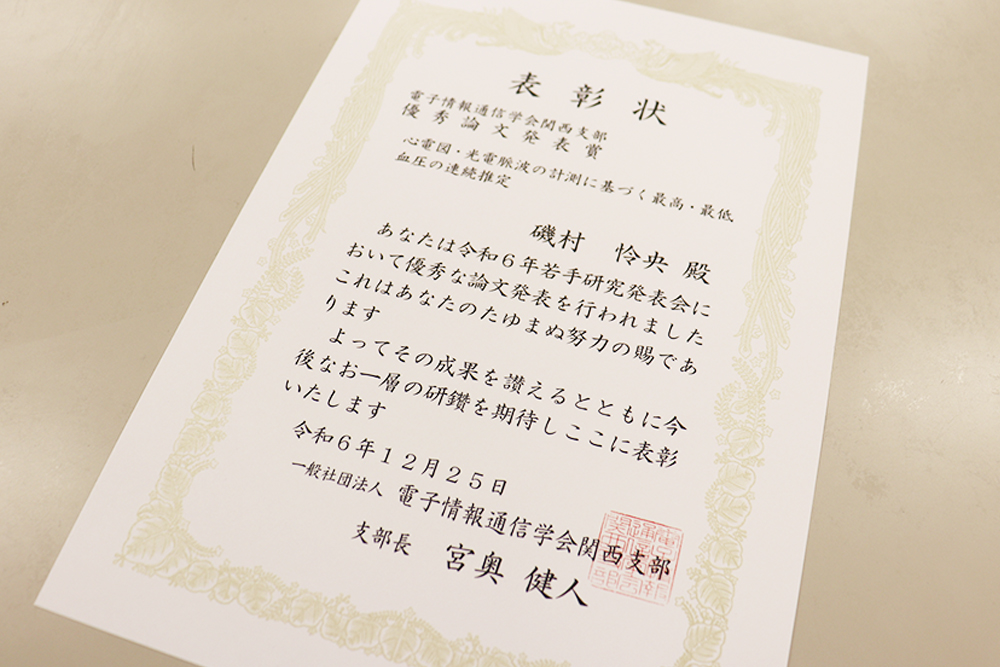 表彰状
電子情報通信学会関西支部
優秀論文発表賞
心電図・光電脈波の計測に基づく最高・最低
血圧の連続推定
磯村 怜央 殿
あなたは令和6年若手研究発表会に
おいて優秀な論文発表を行われました
これはあなたのたゆまぬ努力の賜であ
ります
よってその成果を讃えるとともに今
後なお一層の研鑽を期待しここに表彰
いたします
令和6年12月25日
一般社団法人 電子情報通信学会関西支部
支部長 宮奥 健人